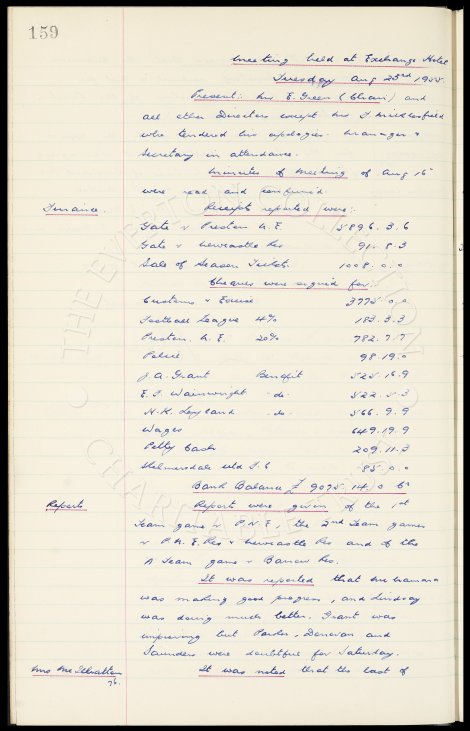 159
Meeting held at Exchange Hotel
Tuesday Aug 23rd 1955.
Present:- Mr. E. Green (Chair) and
all other Directors except Mr T. Micklesfield
who tendered his apologies. Manager &
Secretary in attendance.
Minutes of Meeting of Aug 16th
were read and confirmed.
Finance. Receipts reported were:-
Gate v Preston N.E. 5896.3.6
Gate v Newcastle Res 91.8.3
Sale of Season Tickets. 1008.0.0
Cheques were signed for:-
Customs & Excise 3775.0.0
Football League 4% 183.3.3
Preston. N.E. 20% 782.7.7
Police 98.19.0
J.A. Grant Benefit 525.16.9
E.F. Wainwright -do- 522.5.3
H.K. Leyland -do- 566.9.9
Wages 649.19.9
Petty Cash 209.11.3
Skelmersdale Utd F.C 85.0.0
Bank Balance £ 9095.14.0
Reports Report were given of the 1st
Team game v P.N.E., the 2nd Team games
v P.N.E. Res & Newcastle Res and of the
A Team game v Barrow Res.
It was reported that
was making good progress, and Lindsay
was doing much better, Grant was
improving but Parker, Donovan and
Saunders were doubtful for Saturday.
Mrs McIlhatton It was noted that the cost of
THE EVERTON COLLECTION
CHARITABLE